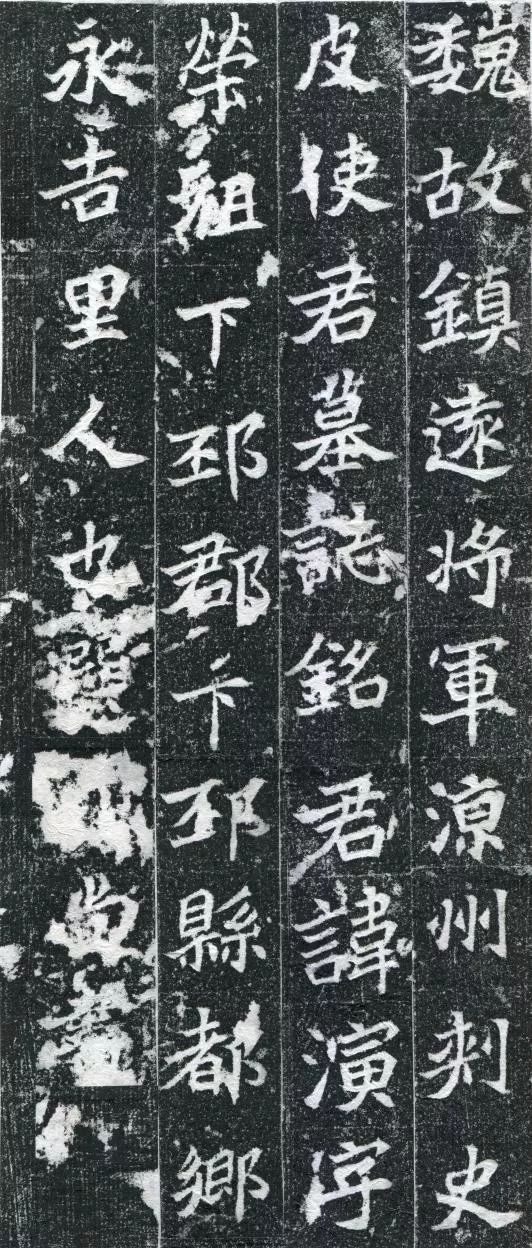 魏故鎮遠將軍涼州刾史
皮使君墓誌銘君諱演字
榮祖下邳郡下邳縣都鄉
永吉里人也顯尚書